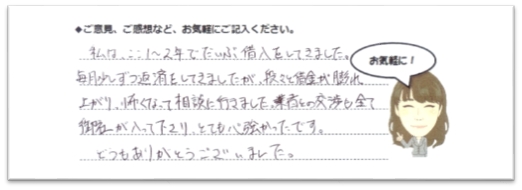 ◆ご意見、ご感想など、お気軽にご記入ください。
私は、ここ1～2年でだいぶ借入をしてきました。
お気軽に！
毎月少しずつ返済をしてきましたが、段々と借金が膨れ
上がり、怖くなって相談に行きました。業者との交渉も全て
間に入って下さり、とても心強かったです。
どうもありがとうございました。